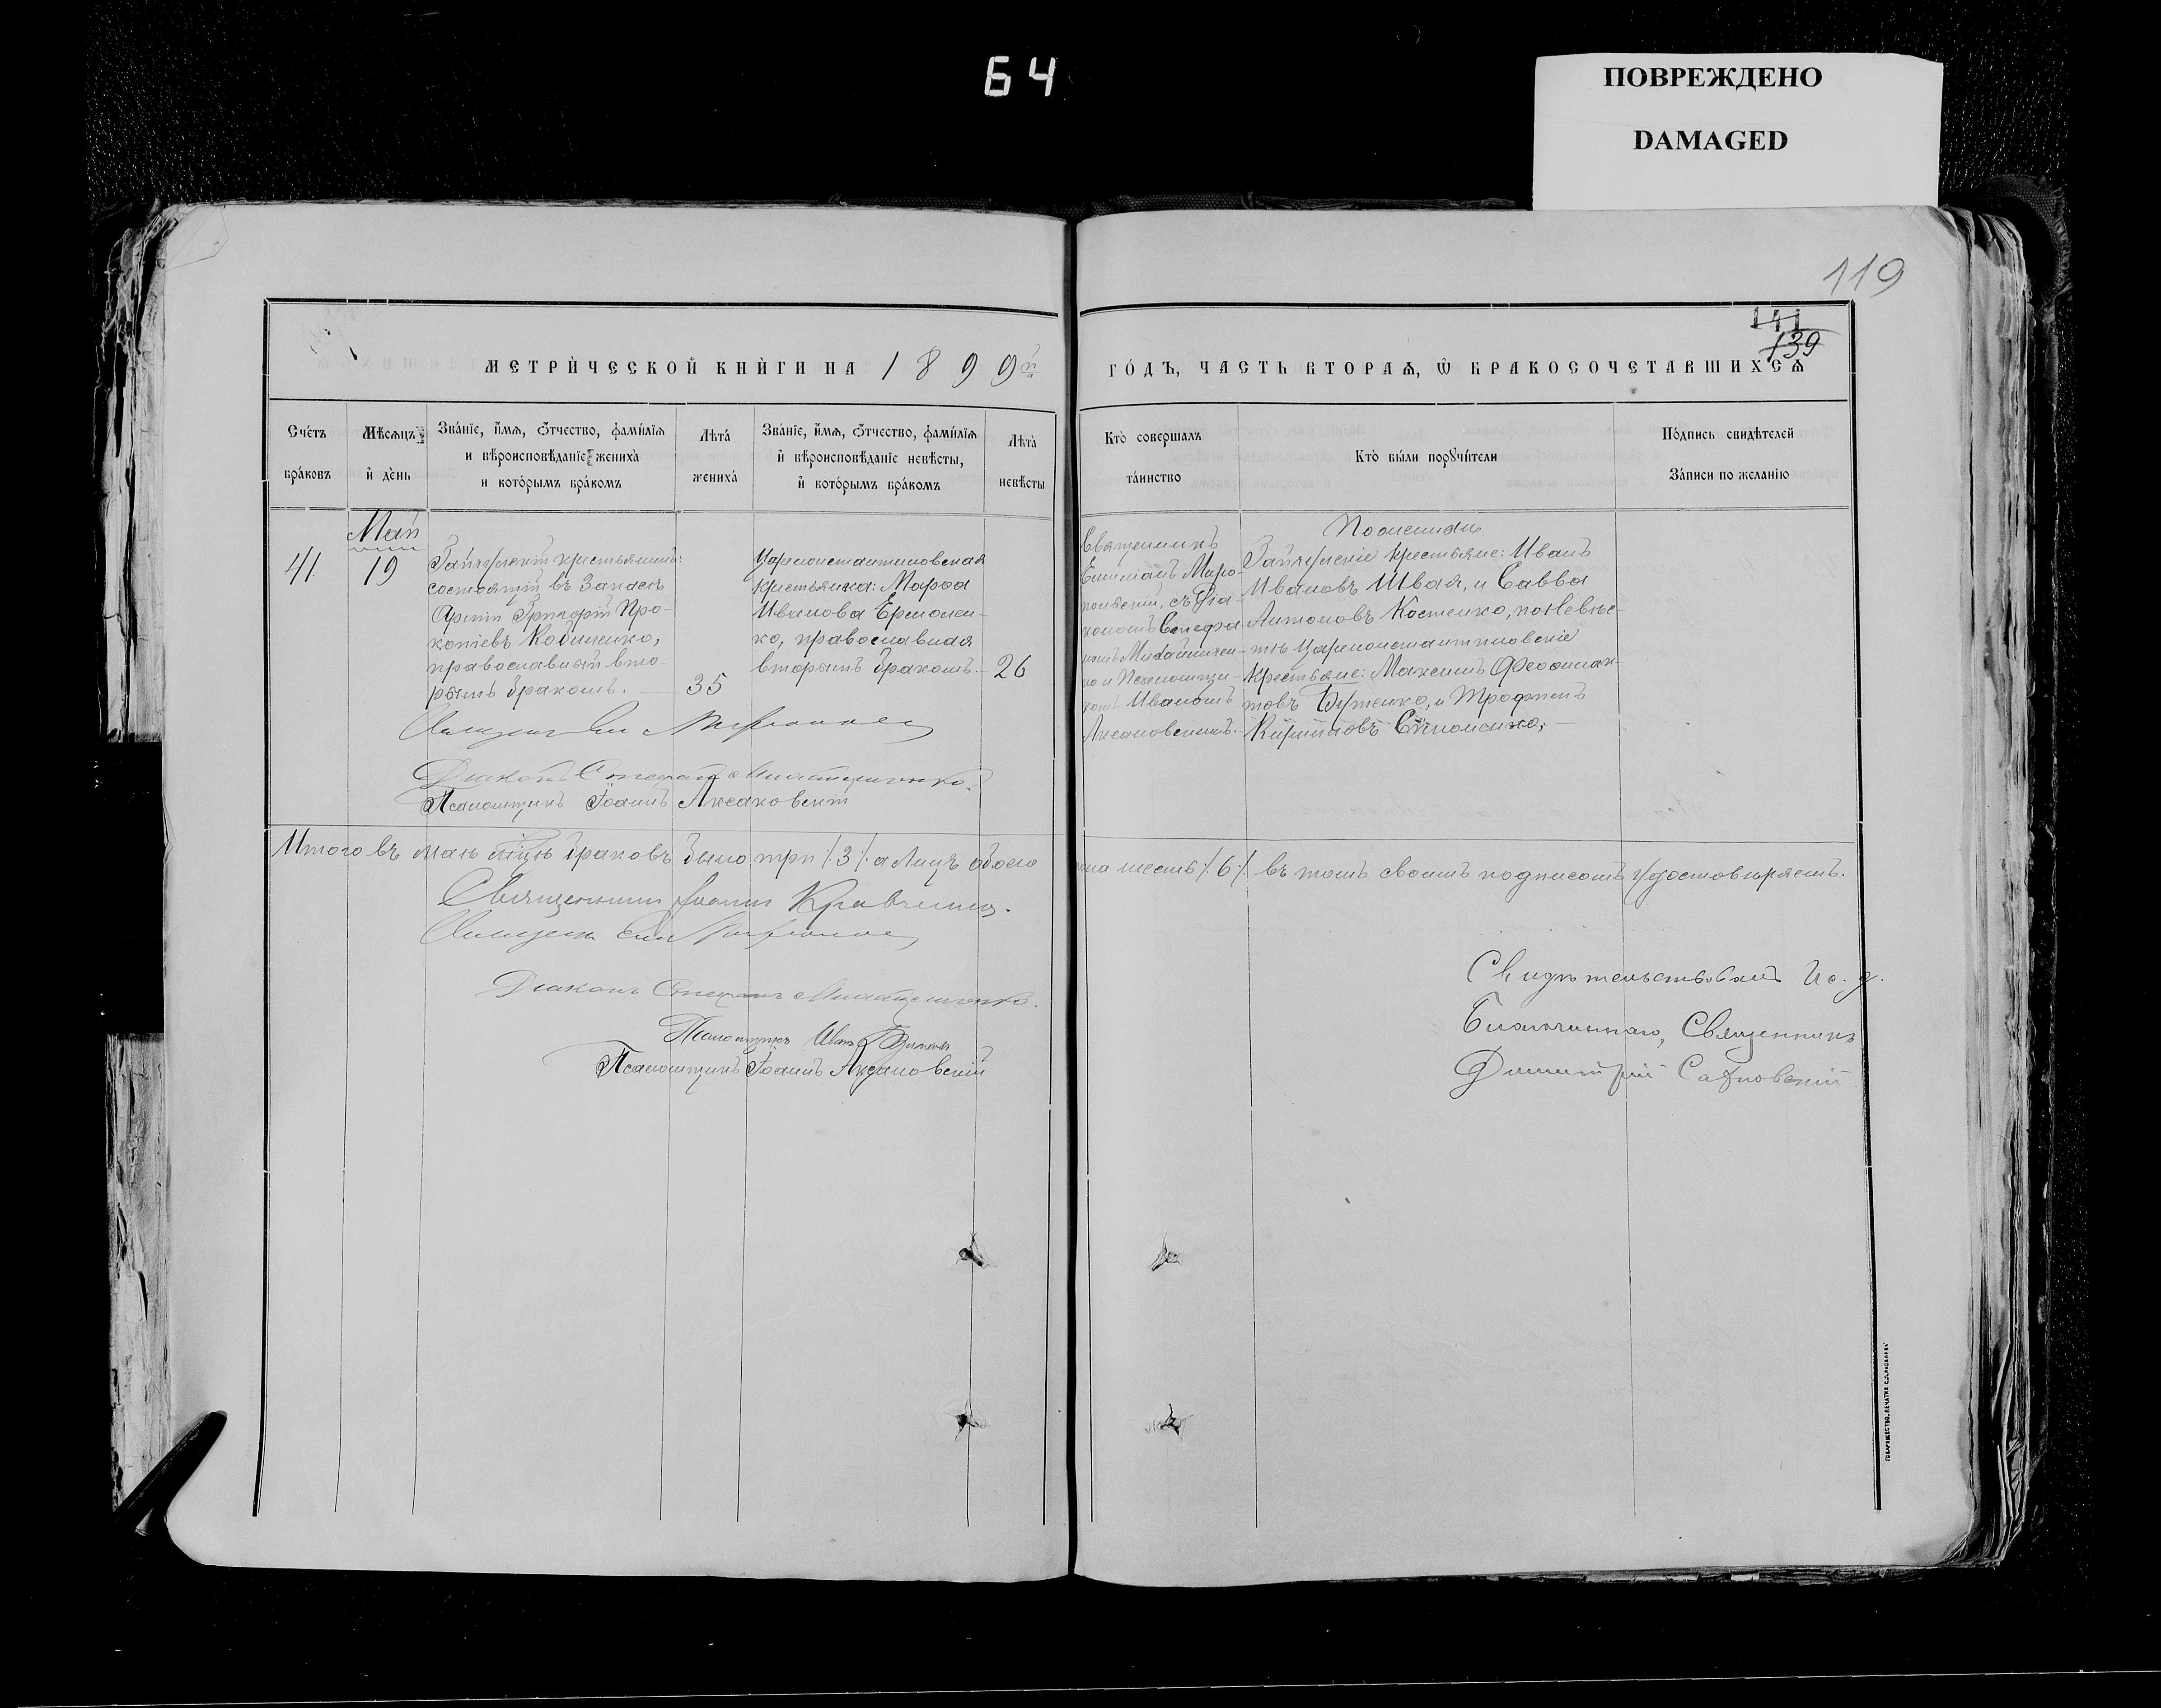 64
ПОВРЕЖДЕНО
DAMAGED
119
141
139
МЕТРИ́ЧЕСКОЙ КНИ́ГИ НА 1899й
ГО́ДЪ, ЧАСТЬ ВТОРАѦ, Ѿ БРАКОСОЧЕТАВШИХСѦ
Сче́тъ
бра́ковъ
Мѣсѧцъ
и҆ де́нь
Зва́нїе, и҆́мѧ, ѻ҆́тчество, фами́лїѧ
и вѣроисповѣданїе жениха̀
и кото́рымъ бра́комъ
Лѣта̀
жениха̀
Зва́нїе, и҆́мѧ, ѻ҆́тчество, фами́лїѧ
и҆ вѣроисповѣданїе невѣ́сты,
и҆ кото́рымъ бра́комъ
Лѣта̀
невѣ́сты
Кто̀ соверша́лъ
та́инство
Кто̀ бы́ли порꙋчи́тели
По́дпись свидѣ́телей
За́писи по жела́нїю
Май
41.
19
Гайчурскій крестьянинъ:
состоящій въ Запасѣ
Арміи Григорій Про-
копіевъ Кобиленко,
православный вто-
рымъ бракомъ. —
35
Цареконстантиновская
крестьянка: Марфа
Иванова Ермолен-
ко, православная
вторымъ бракомъ. —
26
Священникъ
Миро-
польскій, съ Діа-
кономъ Стефа-
номъ
но и Псаломщи-
комъ Иваномъ
Аксаковскимъ.
По женихѣ
Гайчурскіе крестьяне: Иванъ
Ивановъ Швая, и Савва
Антоновъ Костенко, по Невѣс-
тѣ Цареконстантиновскіе
крестьяне: Максимъ Феофилак-
товъ Бутенко, и Трофимъ
Кирилловъ
Діаконъ Стефанъ
Псаломщикъ Іоаннъ Аксаковскій
Итого въ маѣ мѣсяцѣ браковъ было три /3/ а лицъ обоего
пола шесть /6/ въ томъ своимъ подписомъ удостовѣряемъ.
Священникъ Іоаннъ Кравченко.
Діаконъ Стефанъ
Псаломщикъ Иванъ
Псаломщикъ Іоаннъ Аксаковскій
Свидѣтельствовалъ Ис. д.
Благочиннаго, Священникъ
Димитрій Сахновскій
ТОВАРИЩЕСТВО „ПЕЧАТНЯ С. П. ЯКОВЛЕВА“